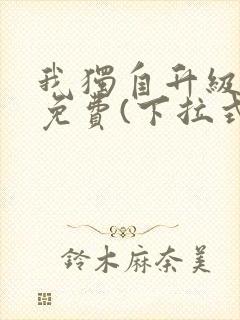 我獨自升級
免費(下拉式
鈴木麻奈美